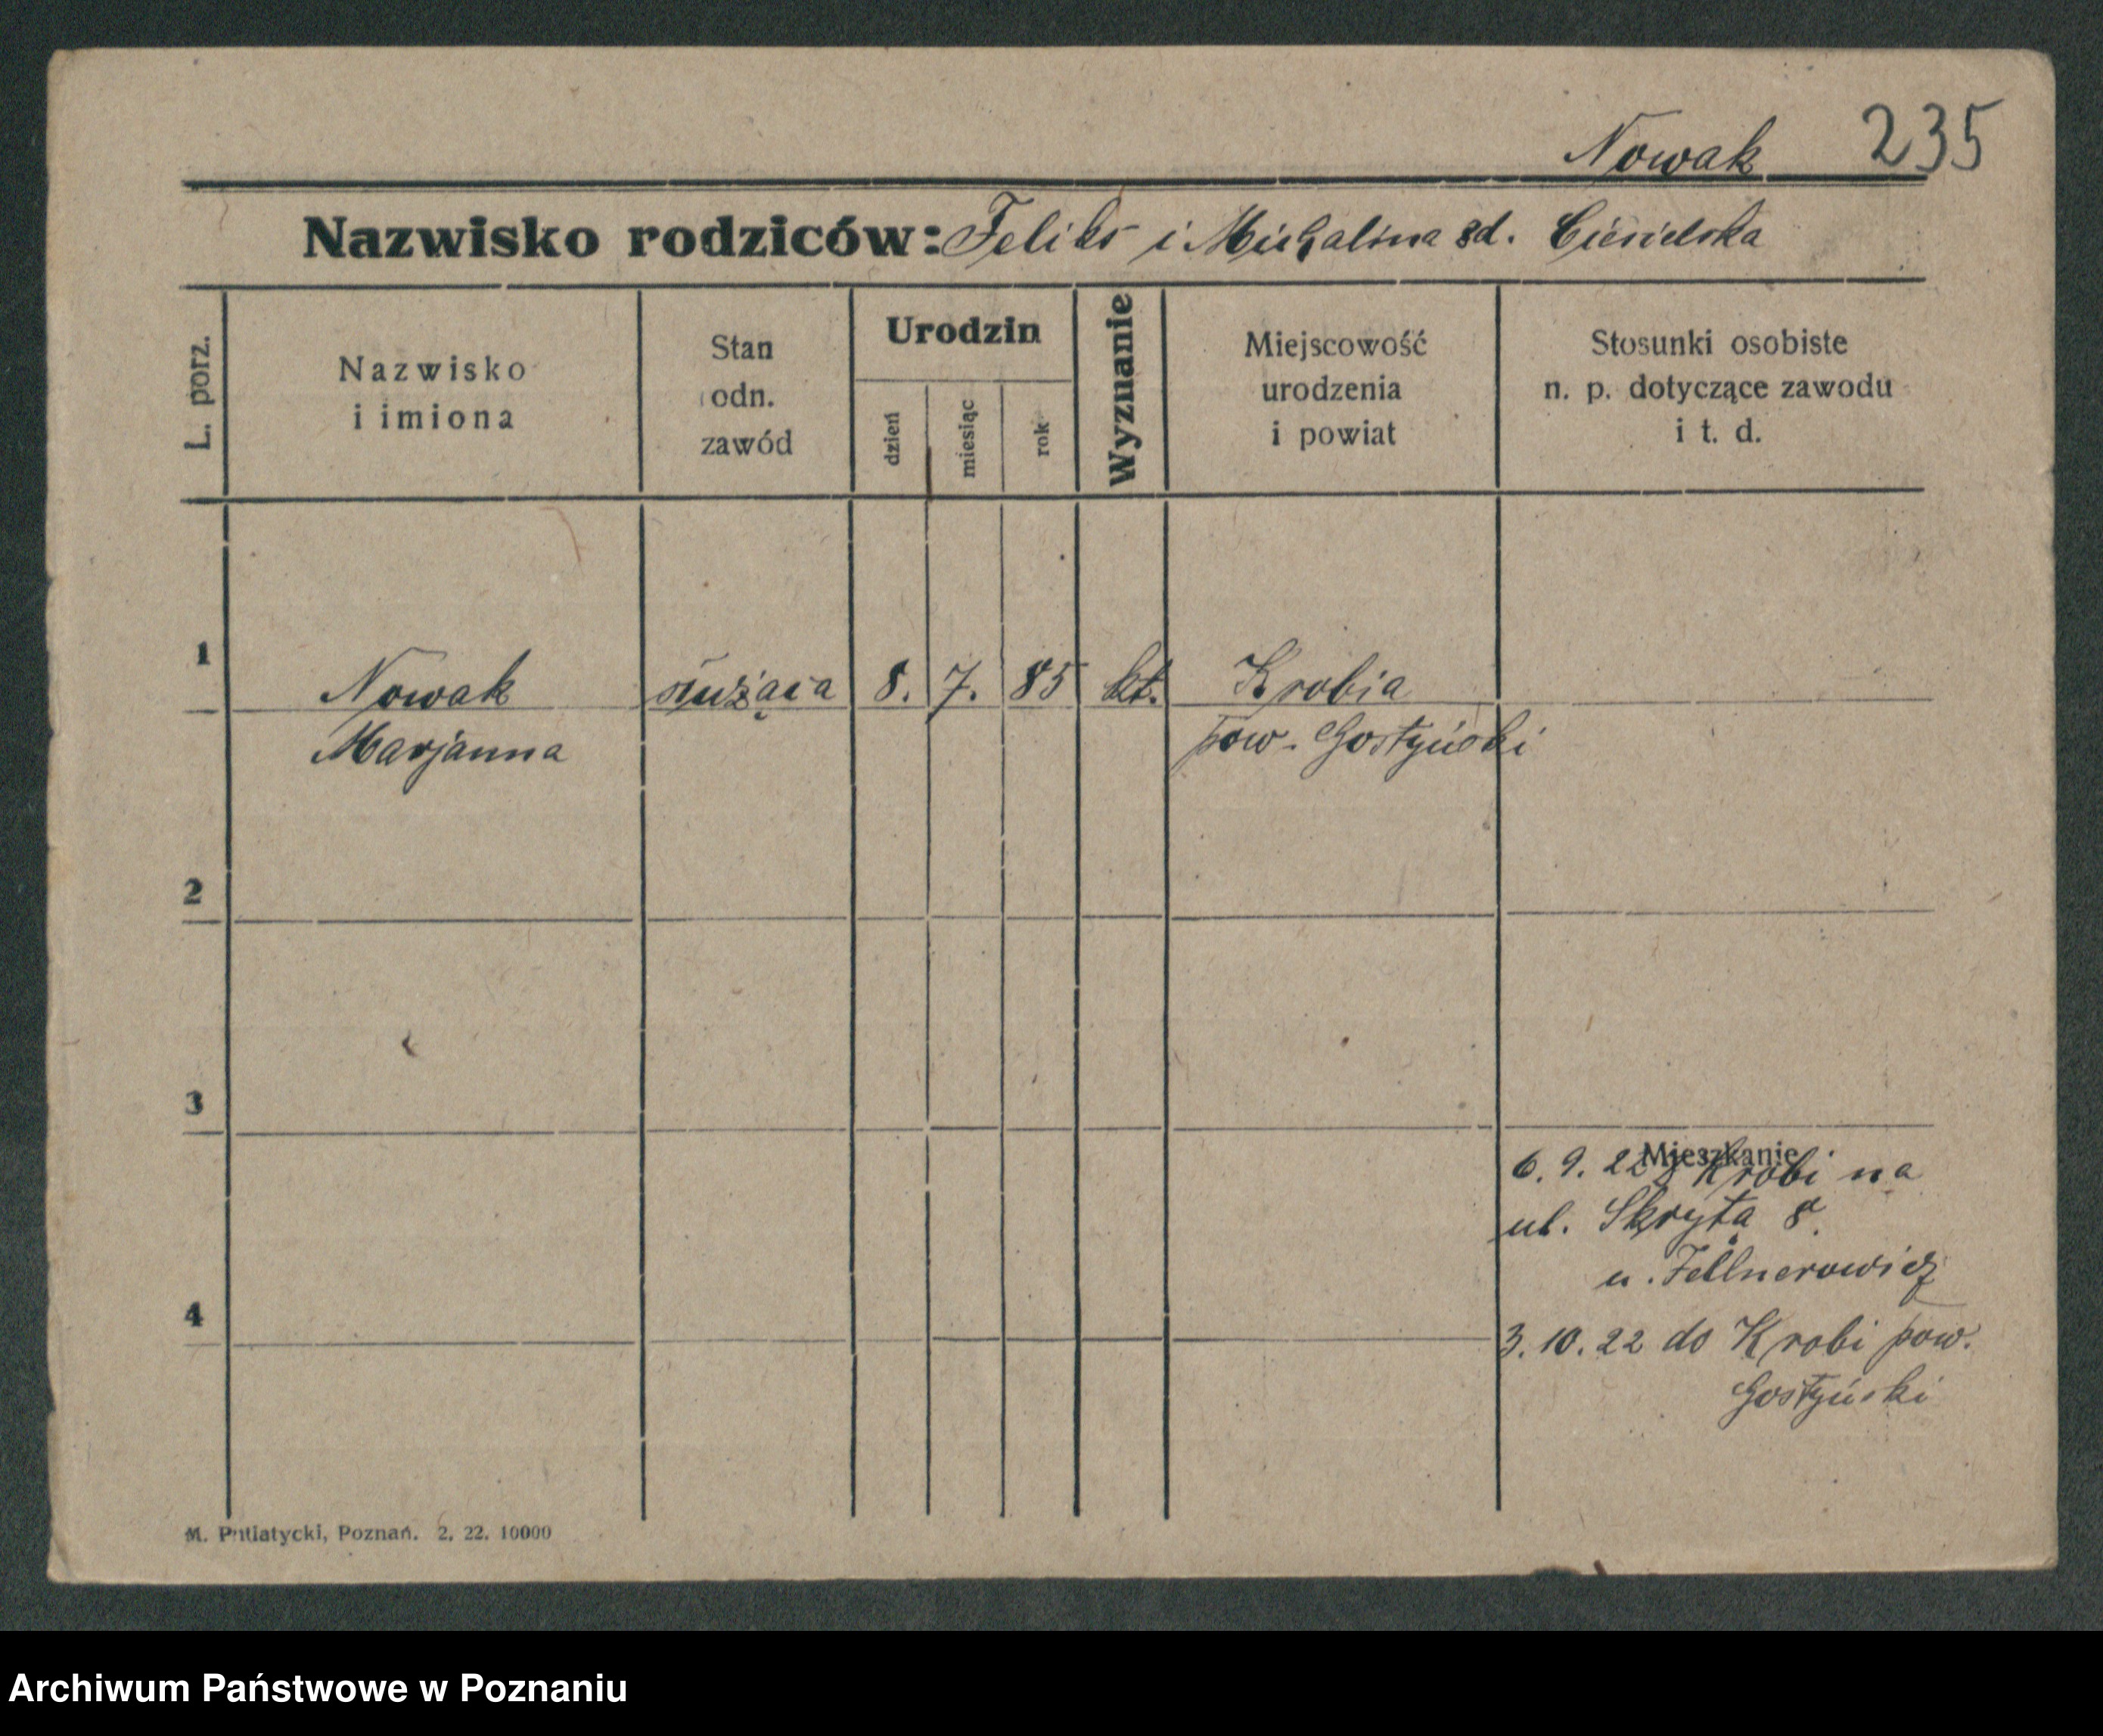 Nowak 235
Nazwisko rodziców: Feliks i Michalina zd. Ciesielska
L. porz.
Nazwisko
i imiona
Stan
odn.
zawód
Urodzin
dzień
miesiąc
rok
Wyznanie
Miejscowość
urodzenia
i powiat
Stosunki osobiste
n. p. dotyczące zawodu
i t. d.
1 Nowak służąca 8. 7. 85 kt. Krobia
Marjanna pow. Gostyński
2
3
Mieszkanie
6. 9. 22 z Krobi na
ul. Skryta 8.
u. Zellnerowicz
4
3. 10. 22 do Krobi pow.
Gostyński
M. Putiatycki, Poznań. 2, 22. 10000
Archiwum Państwowe w Poznaniu